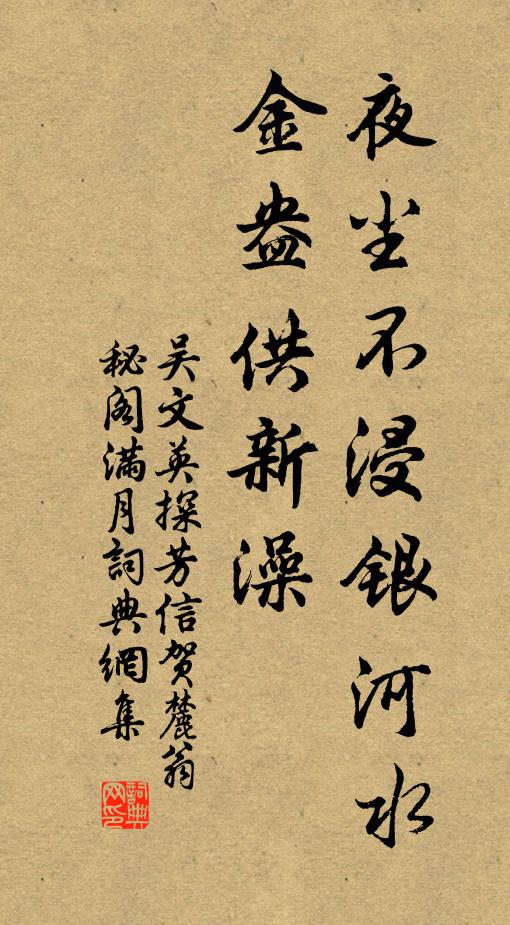 夜尘不浸银河水
金盎供新澡
吴文英探芳信贺麓翁
秘阁满月詞典網集
詞典网印